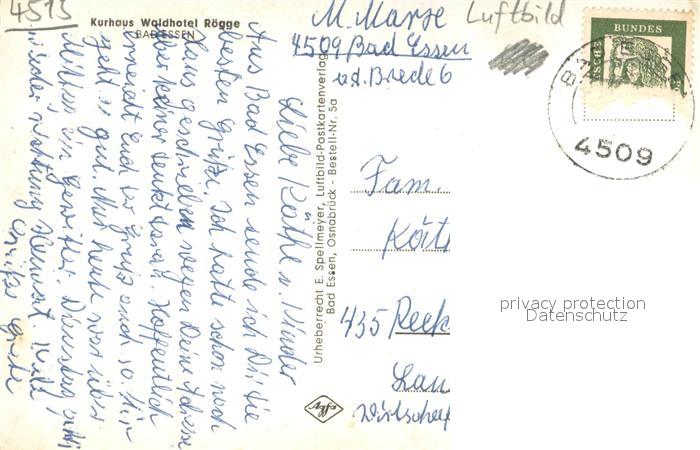 4515
Kurhaus Waldhotel Rögge
BAD ESSEN
M. Marse
4509 Bad Essen
a.d. Brede 6
Luftbild
BUNDES
4509
Liebe Käthe u. Kinder
Aus Bad Essen sende ich Dir die
besten Grüße. Ich hatte schon noch
Hans geschrieben wegen Deine Adresse
aber keiner denkt daran. Hoffentlich
erreicht Euch der Gruß auch so. Mir
geht es gut. Nur heute war über
Mittag ein Gewitter. Dienstag geht
wieder richtung Heimat.
Grüße Grete
Urheberrecht E. Spellmeyer, Luftbild-Postkartenverlag
Bad Essen, Osnabrück - Bestell-Nr. 5a
Fam.
Käth
435 Reck
Lau
Wirtschaf
Agfa
privacy protection
Datenschutz